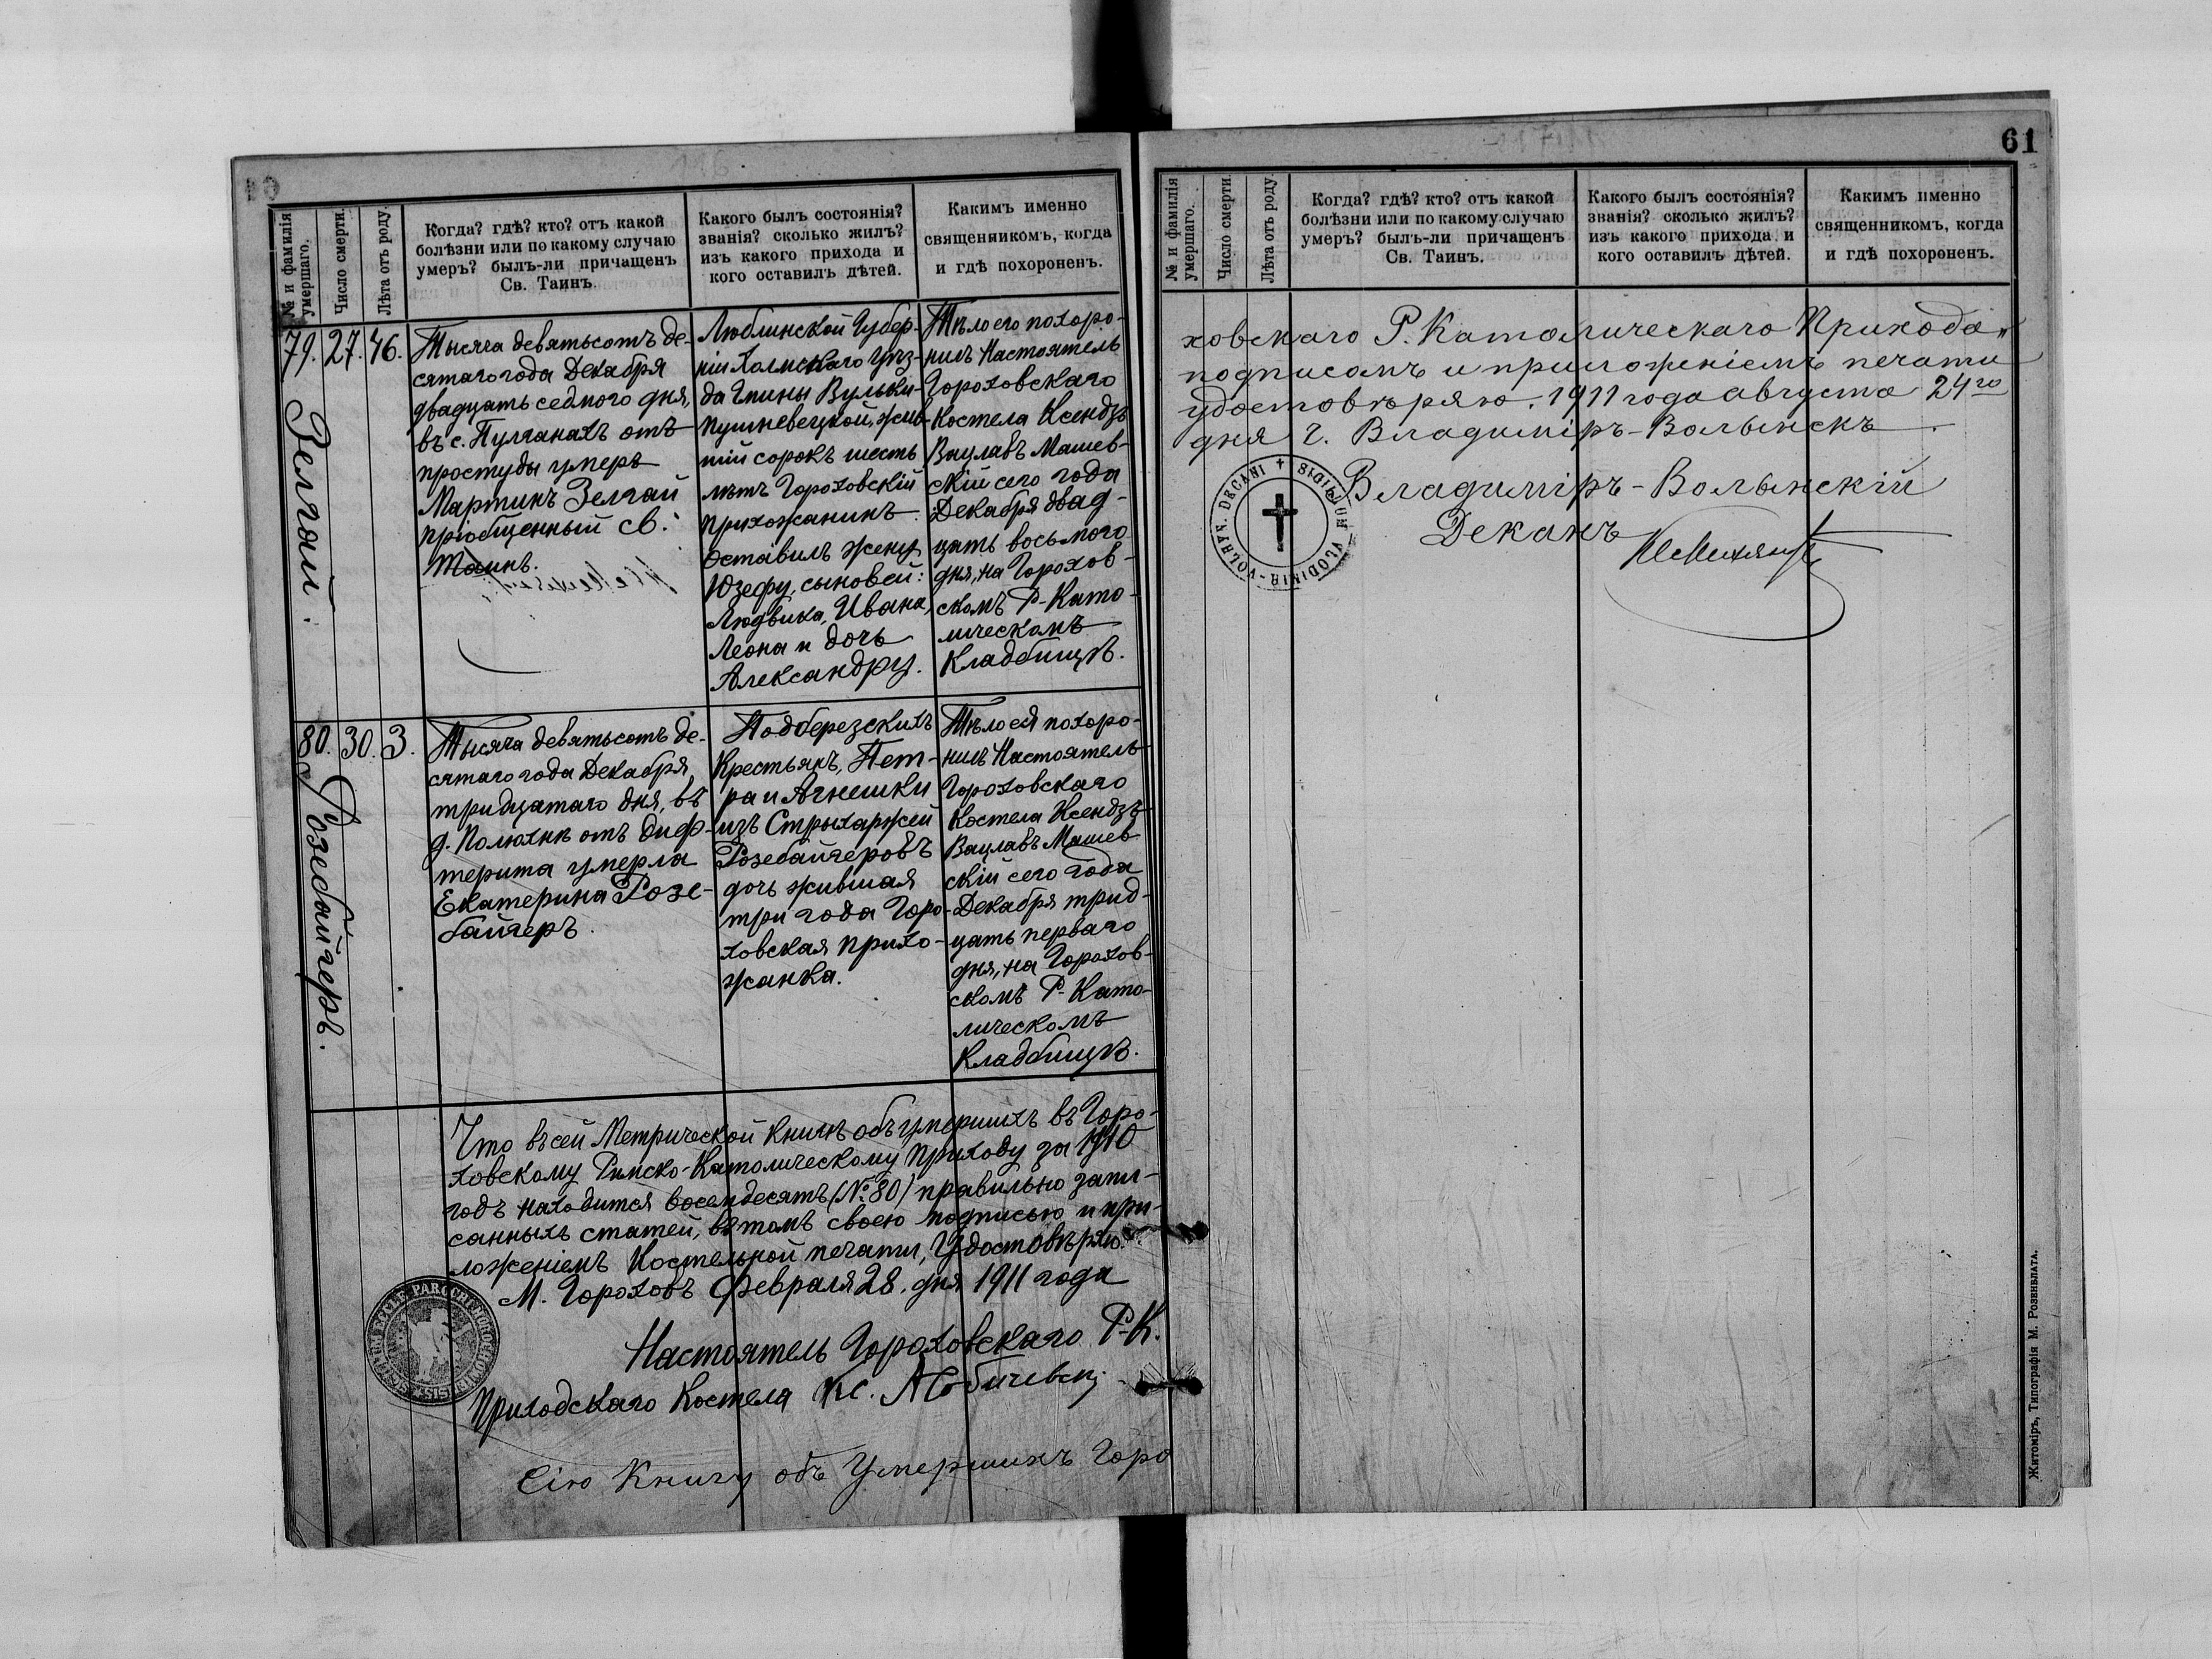 № и фамилія умершаго.
Число смерти.
Лѣта отъ роду.
Когда? гдѣ? кто? отъ какой
болѣзни или по какому случаю
умеръ? былъ-ли причащенъ
Св. Таинъ.
Какого былъ состоянія?
званія? сколько жилъ?
изъ какого прихода и
кого оставилъ дѣтей.
Какимъ именно
священникомъ, когда
и гдѣ похороненъ.
79.
Зелгай.
27.
46.
Тысяча девятьсотъ де-
сятаго года Декабря
двадцать седмого дня,
въ с. Пулганахъ отъ
простуды умеръ
Мартинъ Зелгай
пріобщенный св.
Таинъ.
Люблинской Губер-
ніи Холмскаго Уѣз-
да Гмины Вульки-
Пушневецкой, жив-
шій сорокъ шесть
лѣтъ Гороховскій
прихожанинъ.
Оставилъ жену
Юзефу, сыновей:
Людвика, Ивана,
Леона и дочь
Александру.
Тѣло его похоро-
нилъ Настоятель
Гороховскаго
Костела Ксендзъ
Вацлавъ Машев-
скій сего года
Декабря двад-
цать восьмого
дня, на Горохов-
скомъ Р-Като-
лическомъ
Кладбищѣ.
80.
Розебайгеръ.
30.
3.
Тысяча девятьсотъ де-
сятаго года Декабря
тридцатаго дня, въ
д. Полюхнѣ отъ диф-
терита умерла
Екатерина Розе-
байгеръ.
Подберезскихъ
Крестьянъ, Пет-
ра и Агнешки
изъ Стрыхаржей
Розебайгеровъ
дочь жившая
три года Горо-
ховская прихо-
жанка.
Тѣло ея похоро-
нилъ Настоятель
Гороховскаго
Костела Ксендзъ
Вацлавъ Машев-
скій сего года
Декабря трид-
цать перваго
дня, на Горохов-
скомъ Р-Като-
лическомъ
Кладбищѣ.
Что въ сей Метрической Книгѣ объ умершихъ въ Горо-
ховскому Римско-Католическому приходу за 1910
годъ находится восемдесятъ (№ 80) правильно запи-
санныхъ статей, въ томъ своею подписью и при-
ложеніемъ Костельной печати, Удостовѣряю.
М. Гороховъ Февраля 28. дня 1911 года
Настоятель Гороховскаго Р-К.
Приходскаго Костела Кс.
Сію Книгу объ Умершихъ Горо
61
№ и фамилія умершаго.
Число смерти.
Лѣта отъ роду.
Когда? гдѣ? кто? отъ какой
болѣзни или по какому случаю
умеръ? былъ-ли причащенъ
Св. Таинъ.
Какого былъ состоянія?
званія? сколько жилъ?
изъ какого прихода и
кого оставилъ дѣтей.
Какимъ именно
священникомъ, когда
и гдѣ похороненъ.
ховскаго Р. Католическаго Прихода
подписомъ и приложеніемъ печати
удостовѣряю. 1911 года августа 24го
дня г. Владиміръ-Волынскъ.
Владиміръ-Волынскій
Деканъ
Житоміръ, Типографія М. Розенблата.